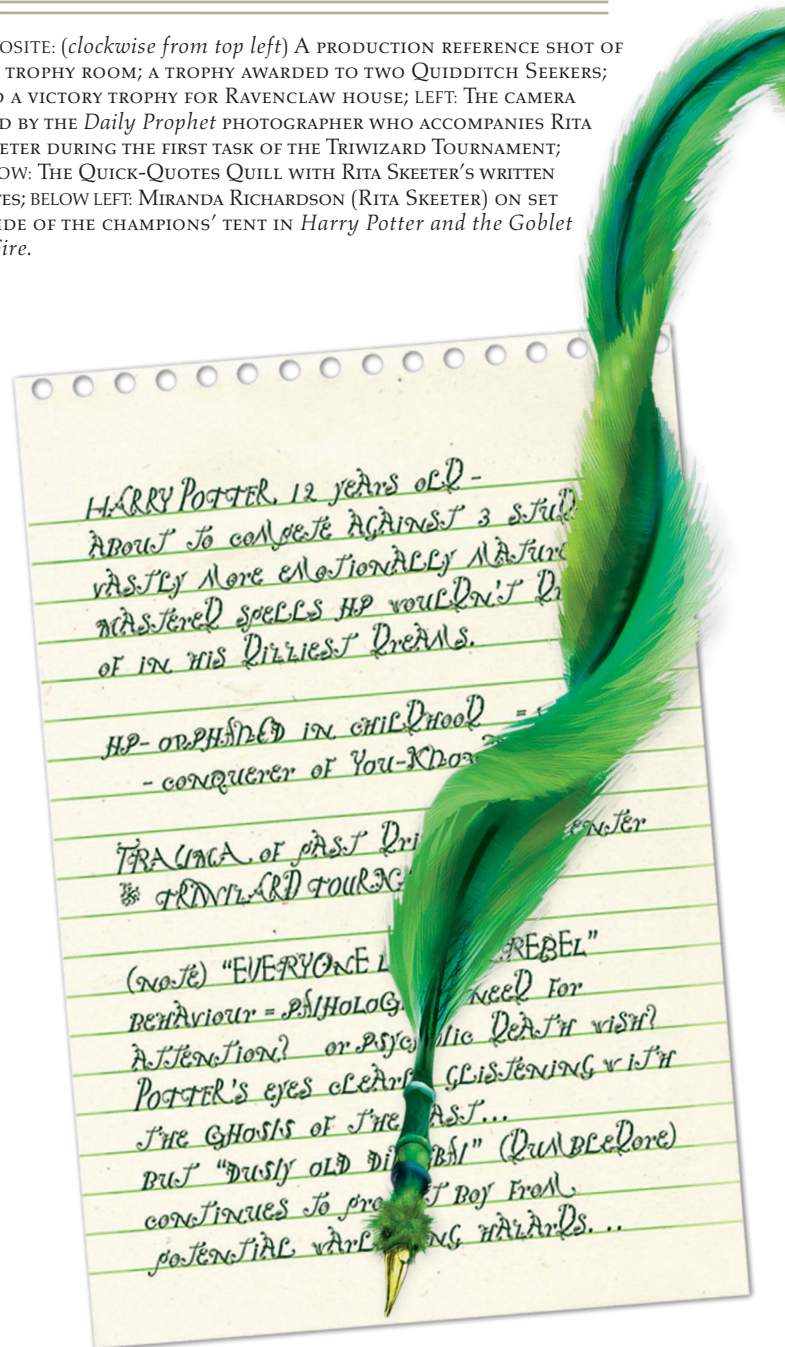 OSITE: (clockwise from top left) A PRODUCTION REFERENCE SHOT OF
TROPHY ROOM; A TROPHY AWARDED TO TWO QUIDDITCH SEEKERS;
A VICTORY TROPHY FOR RAVENCLAW HOUSE; LEFT: THE CAMERA
D BY THE Daily Prophet PHOTOGRAPHER WHO ACCOMPANIES RITA
ETER DURING THE FIRST TASK OF THE TRIWIZARD TOURNAMENT;
OW: THE QUICK-QUOTES QUILL WITH RITA SKEETER'S WRITTEN
ES; BELOW LEFT: MIRANDA RICHARDSON (RITA SKEETER) ON SET
IDE OF THE CHAMPIONS' TENT IN Harry Potter and the Goblet
Fire.
HARRY POTTER, 12 YEARS OLD -
ABOUT TO COMPETE AGAINST 3 STUD
VASTLY MORE EMOTIONALLY MATURE
MASTERED SPELLS HP WOULDN'T DR
OF IN HIS DIZZIEST DREAMS.
HP- ORPHANED IN CHILDHOOD =
- CONQUERER OF YOU-KNOW
TRAUMA OF PAST DRI ENTER
TRIWIZARD TOURNA
(NOTE) "EVERYONE L REBEL"
BEHAVIOUR = PATHOLOG NEED FOR
ATTENTION? OR PSYC TIC DEATH WISH?
POTTER'S EYES CLEARL GLISTENING WITH
THE GHOSTS OF THE AST...
BUT "DUSTY OLD DI BAT" (DUMBLEDORE)
CONTINUES TO PRO T BOY FROM
POTENTIAL WARL NG HAZARDS...